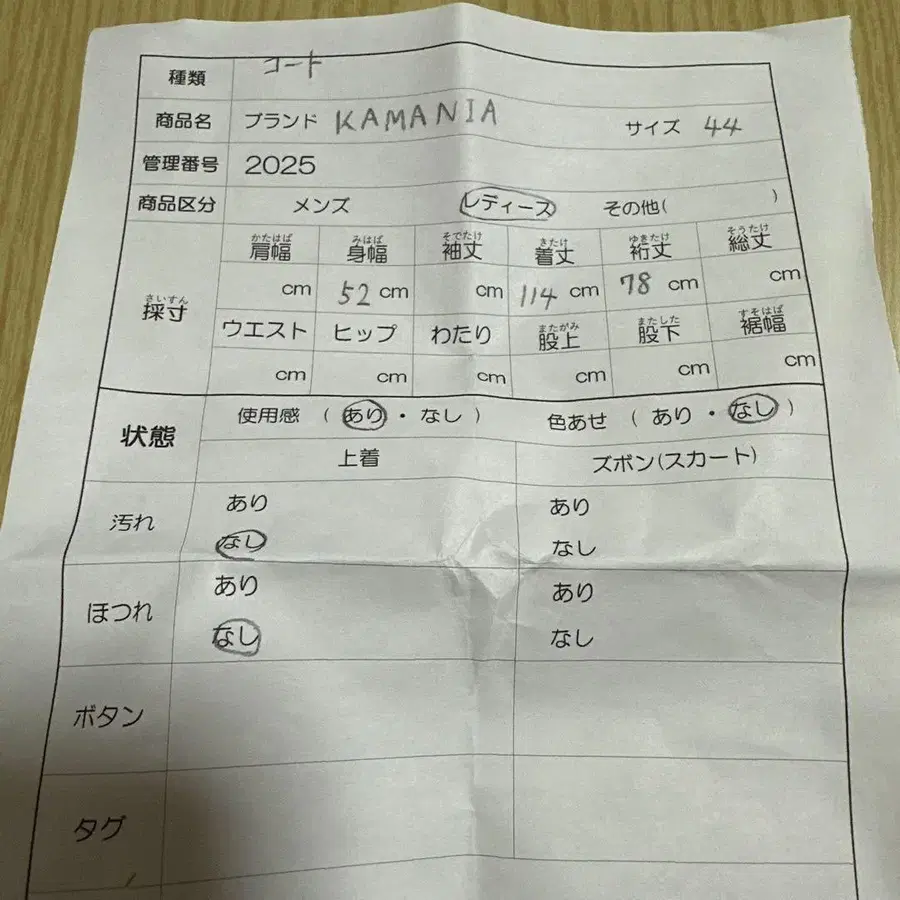 種類 コート
商品名 ブランド KAMANIA サイズ 44
管理番号 2025
商品区分 メンズ レディース その他( )
かたはば みはば そでたけ きたけ ゆきたけ そうたけ
肩幅 身幅 袖丈 着丈 裄丈 総丈
cm 52 cm cm 114 cm 78 cm cm
さいすん
採寸
またがみ またした すそはば
ウエスト ヒップ わたり 股上 股下 裾幅
cm cm cm cm cm cm
状態 使用感 ( あり・なし ) 色あせ ( あり・なし )
上着 ズボン(スカート)
汚れ あり あり
なし なし
ほつれ あり あり
なし なし
ボタン
タグ